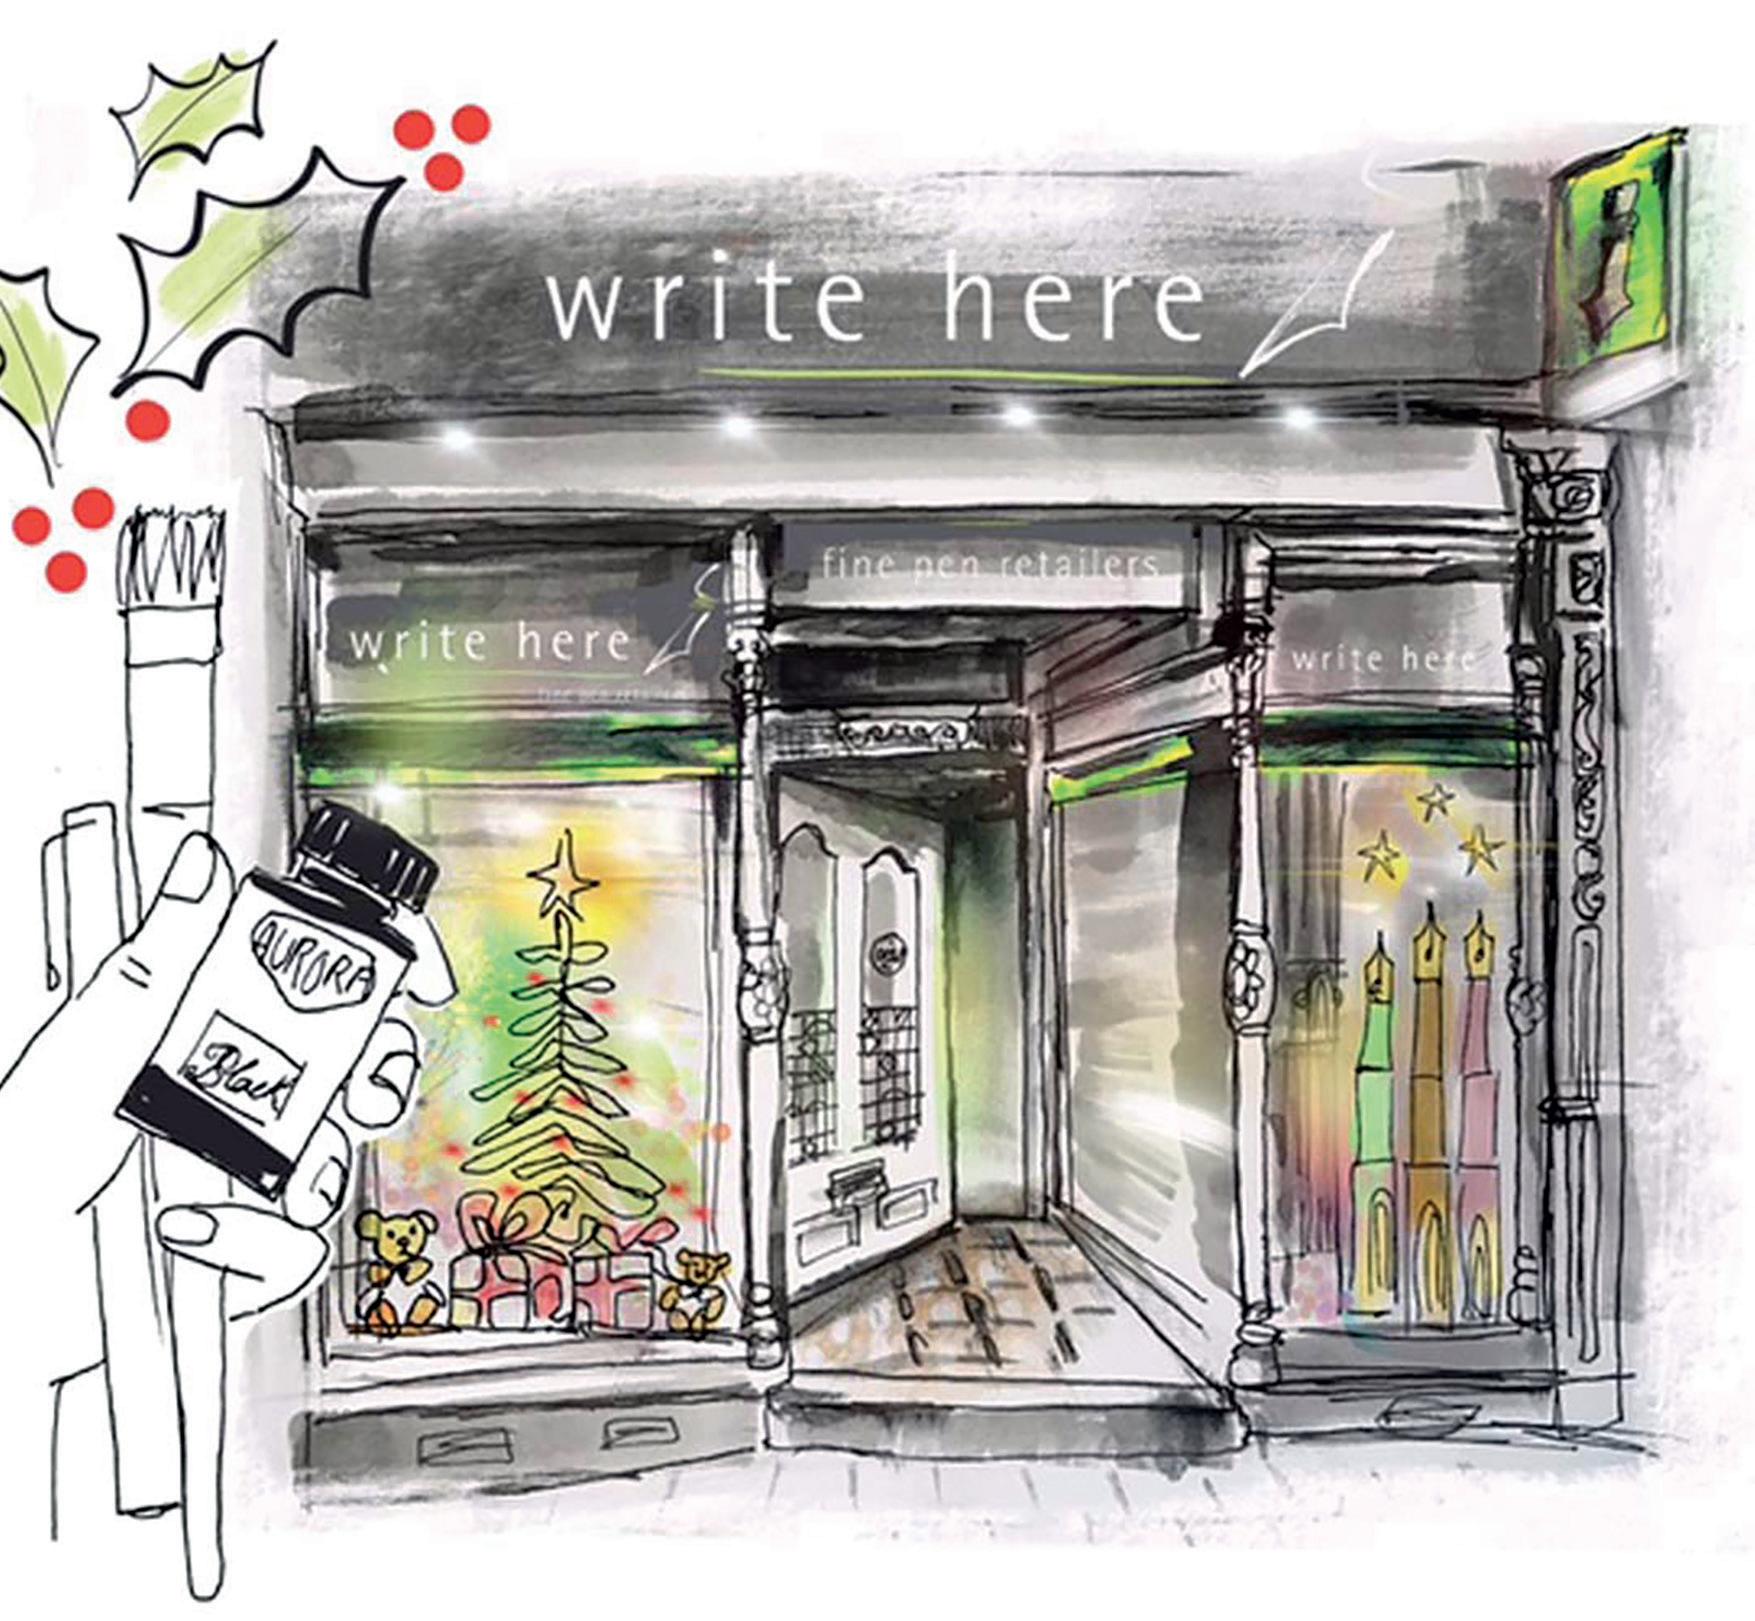 write here
fine pen retailers
write here
fine pen retailers
write here
AURORA
Black